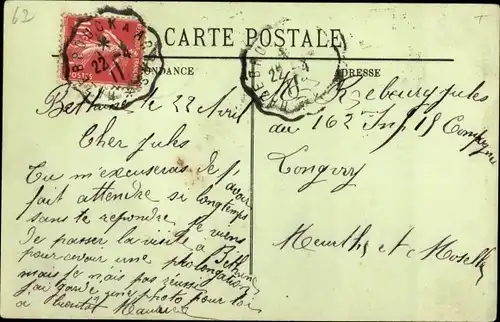 62
T
CARTE POSTALE
CORRESPONDANCE
ADRESSE
POSTES
22 4
22 4
Bethune le 22 Avril
Cher Jules
Tu m'excuseras de t'avoir
fait attendre si longtemps
sans te repondre je viens
de passer la visite a Béthune
pour avoir une prolongation
mais je n'ais pas réussi
j'ai gardé une photo pour toi
a bientot Maurice
Rebourg Jules
au 162 Inf 18 Compagnie
Longwy
Meurthe et Moselle